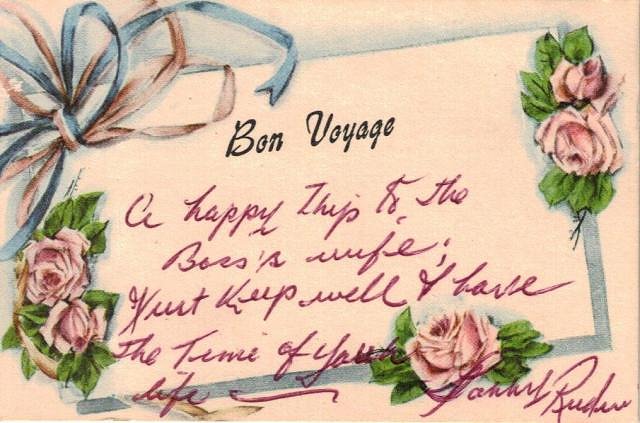 Bon Voyage
A happy trip to the
Boss's wife;
Just Keep well & have
the Time of your
life